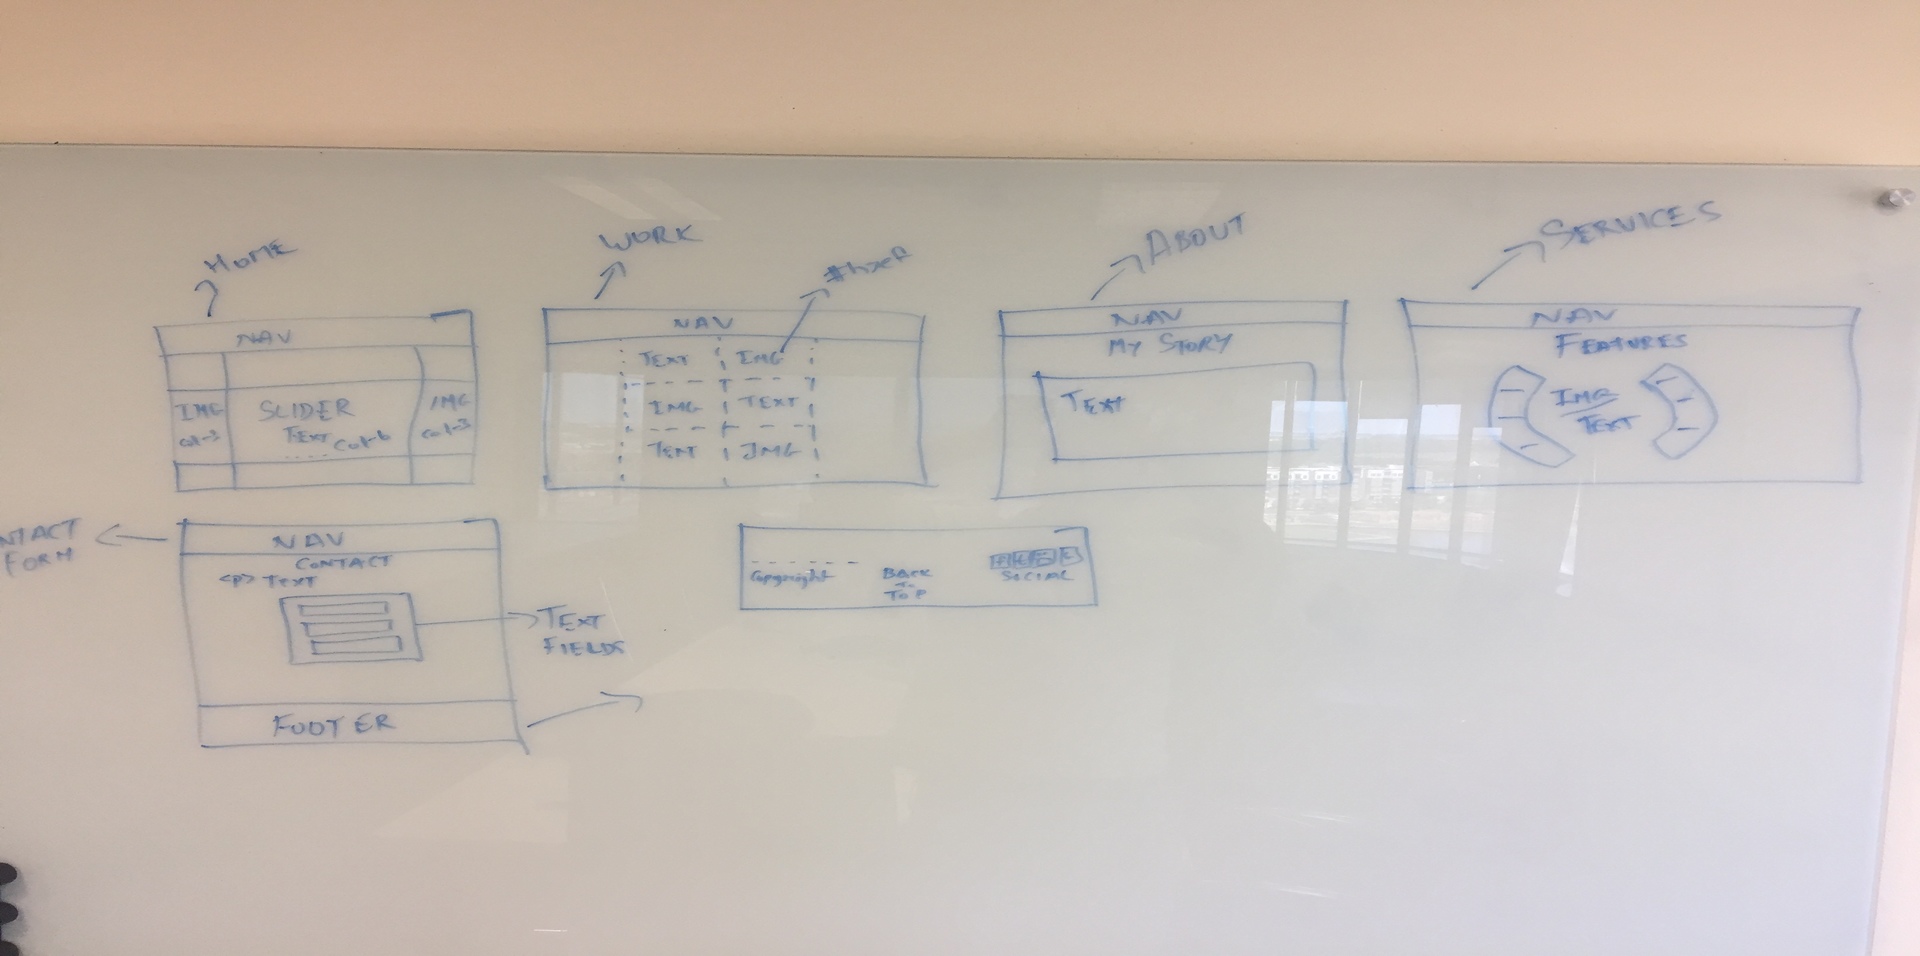 HOME
NAV
IMG
col-3
SLIDER
TEXT col-6
IMG
col-3
WORK
#href
NAV
TEXT IMG
IMG TEXT
TEXT IMG
ABOUT
NAV
MY STORY
TEXT
SERVICES
NAV
FEATURES
IMG
TEXT
NTACT
FORM
NAV
CONTACT
<P> TEXT
TEXT
FIELDS
FOOTER
Copyright
BACK
TO
TOP
SOCIAL